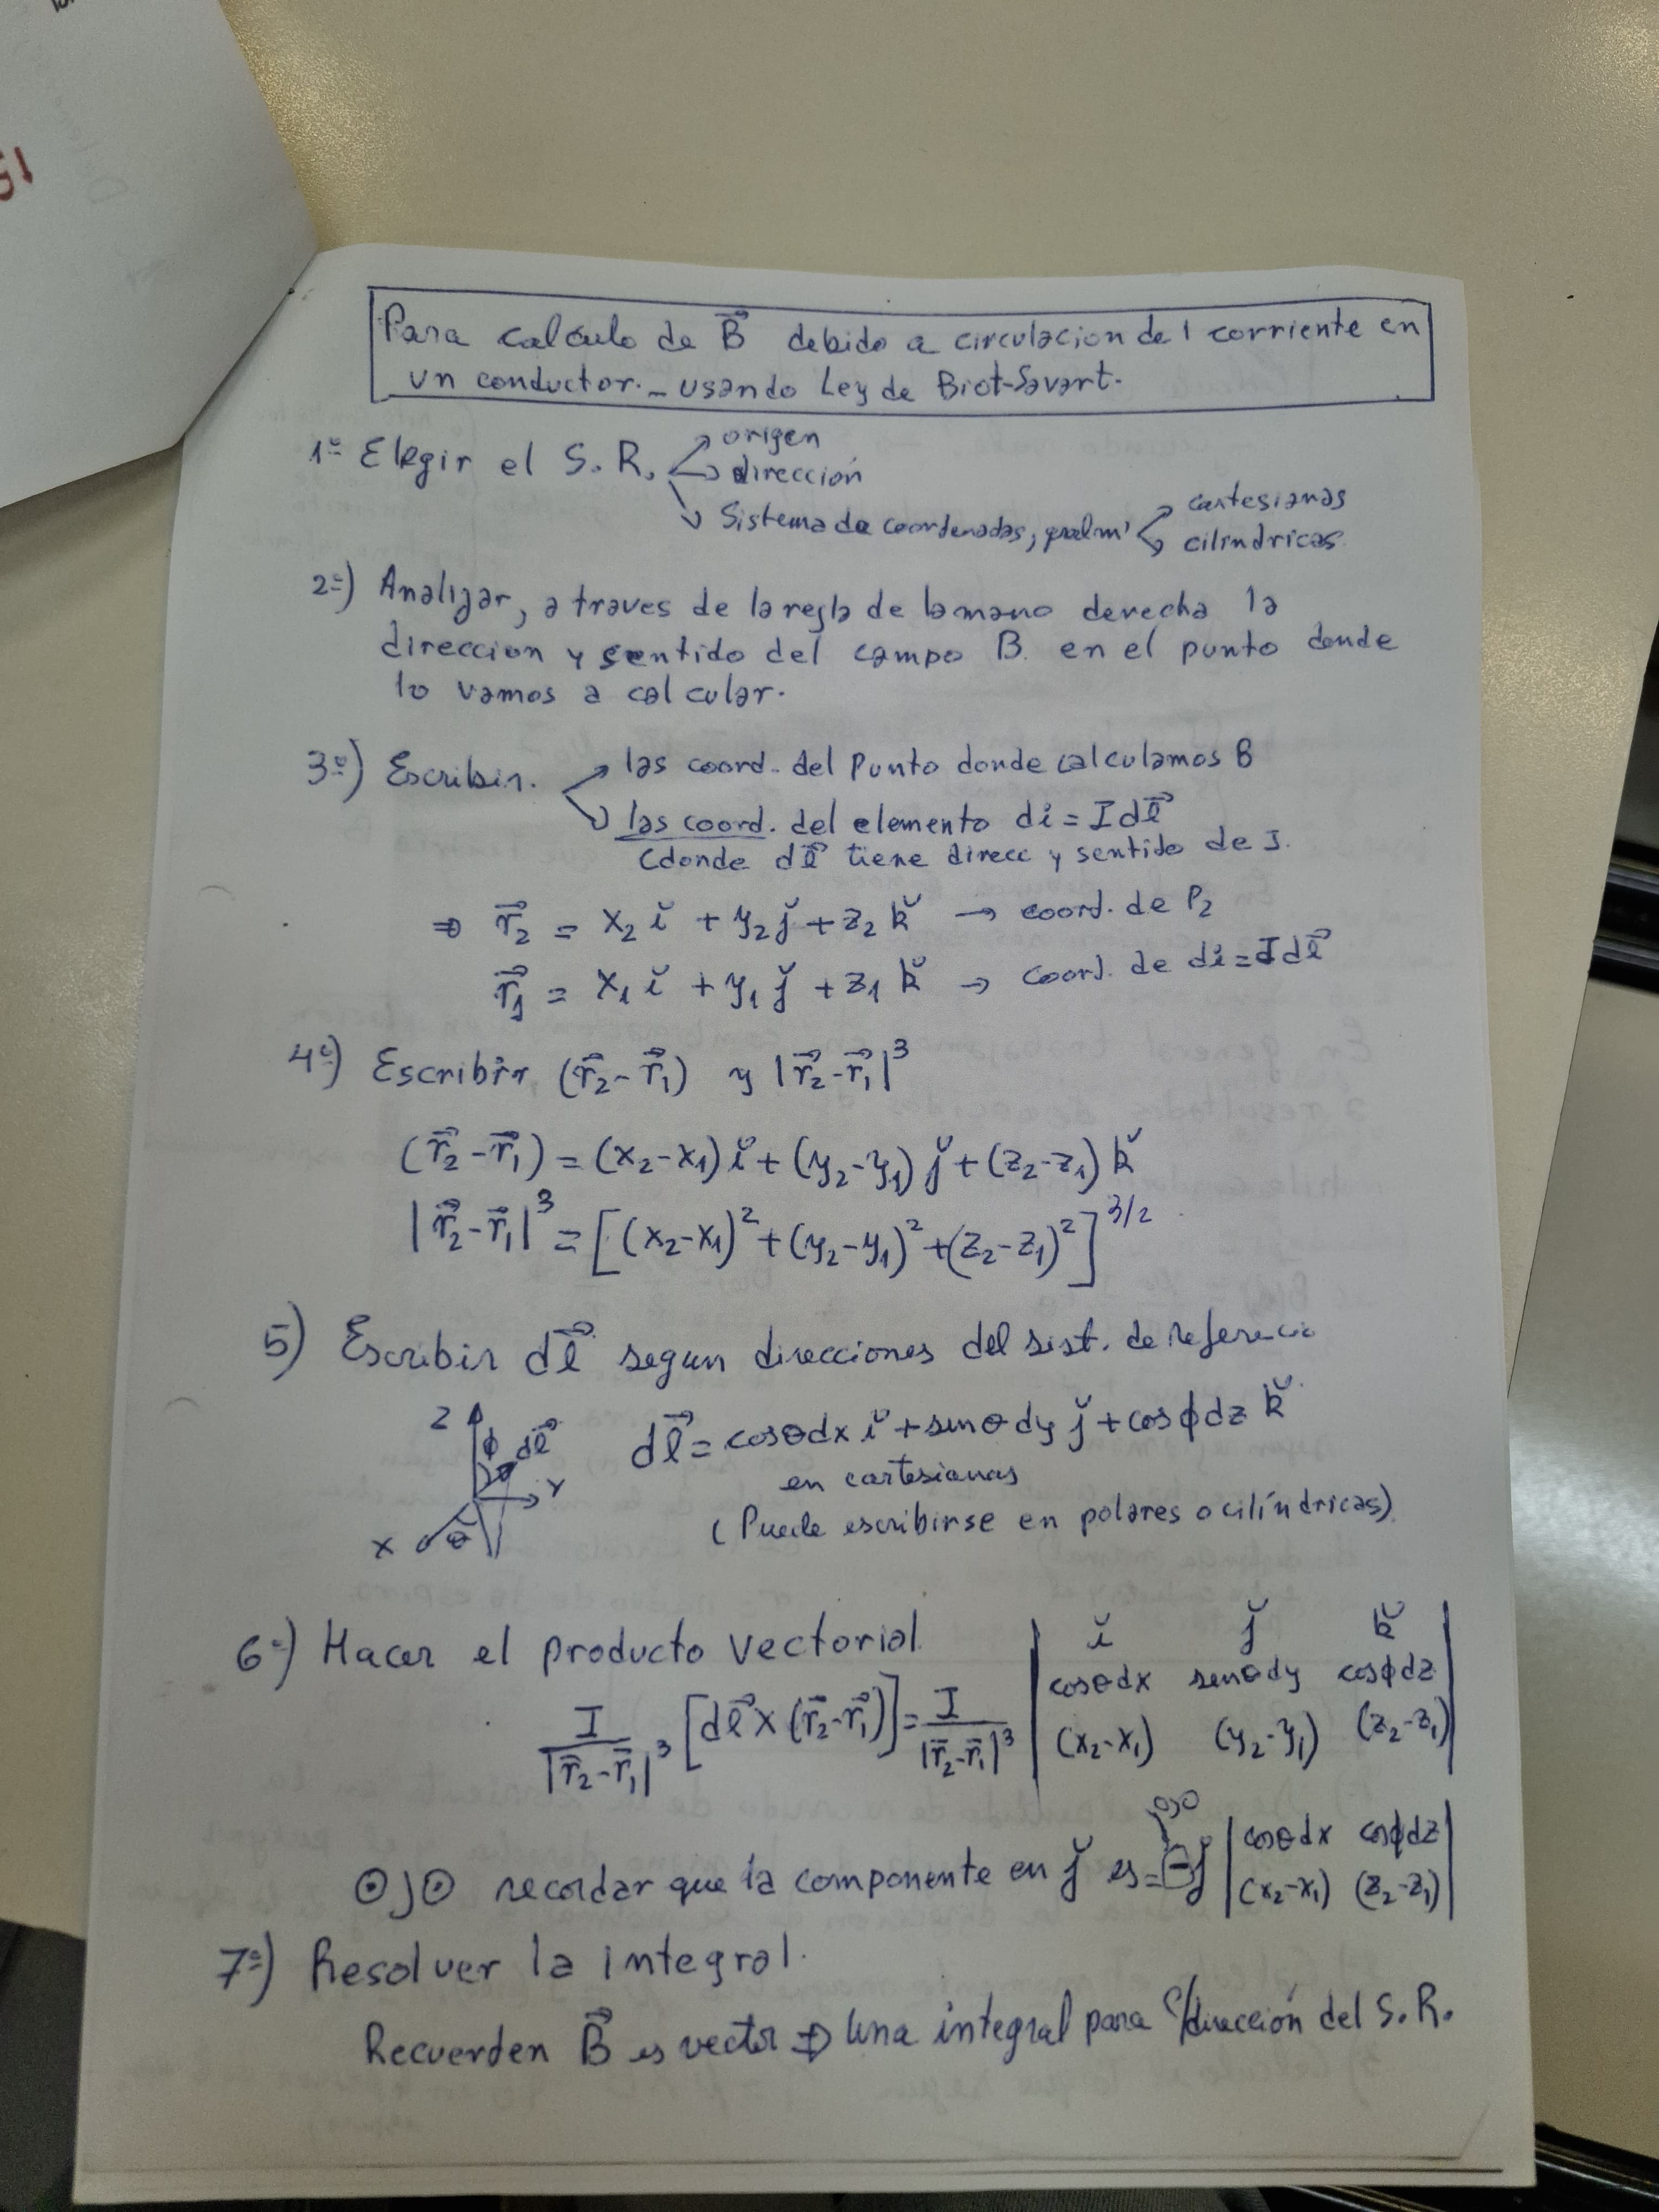 Para calculo de B⃗ debido a circulacion de 1 corriente en
un conductor. - usando Ley de Biot-Savart.
1º Elegir el S.R.
origen
dirección
Sistema de coordenadas, gralm'
cartesianas
cilindricas
2º) Analizar, a traves de la regla de la mano derecha la
direccion y sentido del campo B. en el punto donde
lo vamos a calcular.
3º) Escribir.
las coord. del Punto donde calculamos B
las coord. del elemento di = I dl⃗
(donde dl⃗ tiene direcc y sentido de I.
⇒ r⃗₂ = x₂ ǐ + y₂ ǰ + z₂ ǩ → coord. de P₂
r⃗₁ = x₁ ǐ + y₁ ǰ + z₁ ǩ → coord. de di = I dl⃗
4º) Escribir (r⃗₂ - r⃗₁) y |r⃗₂ - r⃗₁|³
(r⃗₂ - r⃗₁) = (x₂-x₁) ǐ + (y₂-y₁) ǰ + (z₂-z₁) ǩ
|r⃗₂ - r⃗₁|³ = [(x₂-x₁)² + (y₂-y₁)² + (z₂-z₁)²]^3/2
5) Escribir dl⃗ segun direcciones del sist. de referencia
Z φ dl⃗ Y X θ
dl⃗ = cosθ dx ǐ + senθ dy ǰ + cosφ dz ǩ
en cartesianas
(Puede escribirse en polares o cilíndricas)
6º) Hacer el producto vectorial
I/|r⃗₂-r⃗₁|³ [dl⃗ x (r⃗₂-r⃗₁)] = I/|r⃗₂-r⃗₁|³ | ǐ ǰ ǩ |
| cosθdx senθdy cosφdz |
| (x₂-x₁) (y₂-y₁) (z₂-z₁) |
ojo
⊙J⊙ recordar que la componente en ǰ es = -ǰ | cosθdx cosφdz |
| (x₂-x₁) (z₂-z₁) |
7º) Resolver la integral.
Recuerden B⃗ es vector ⇒ Una integral para c/dirección del S.R.